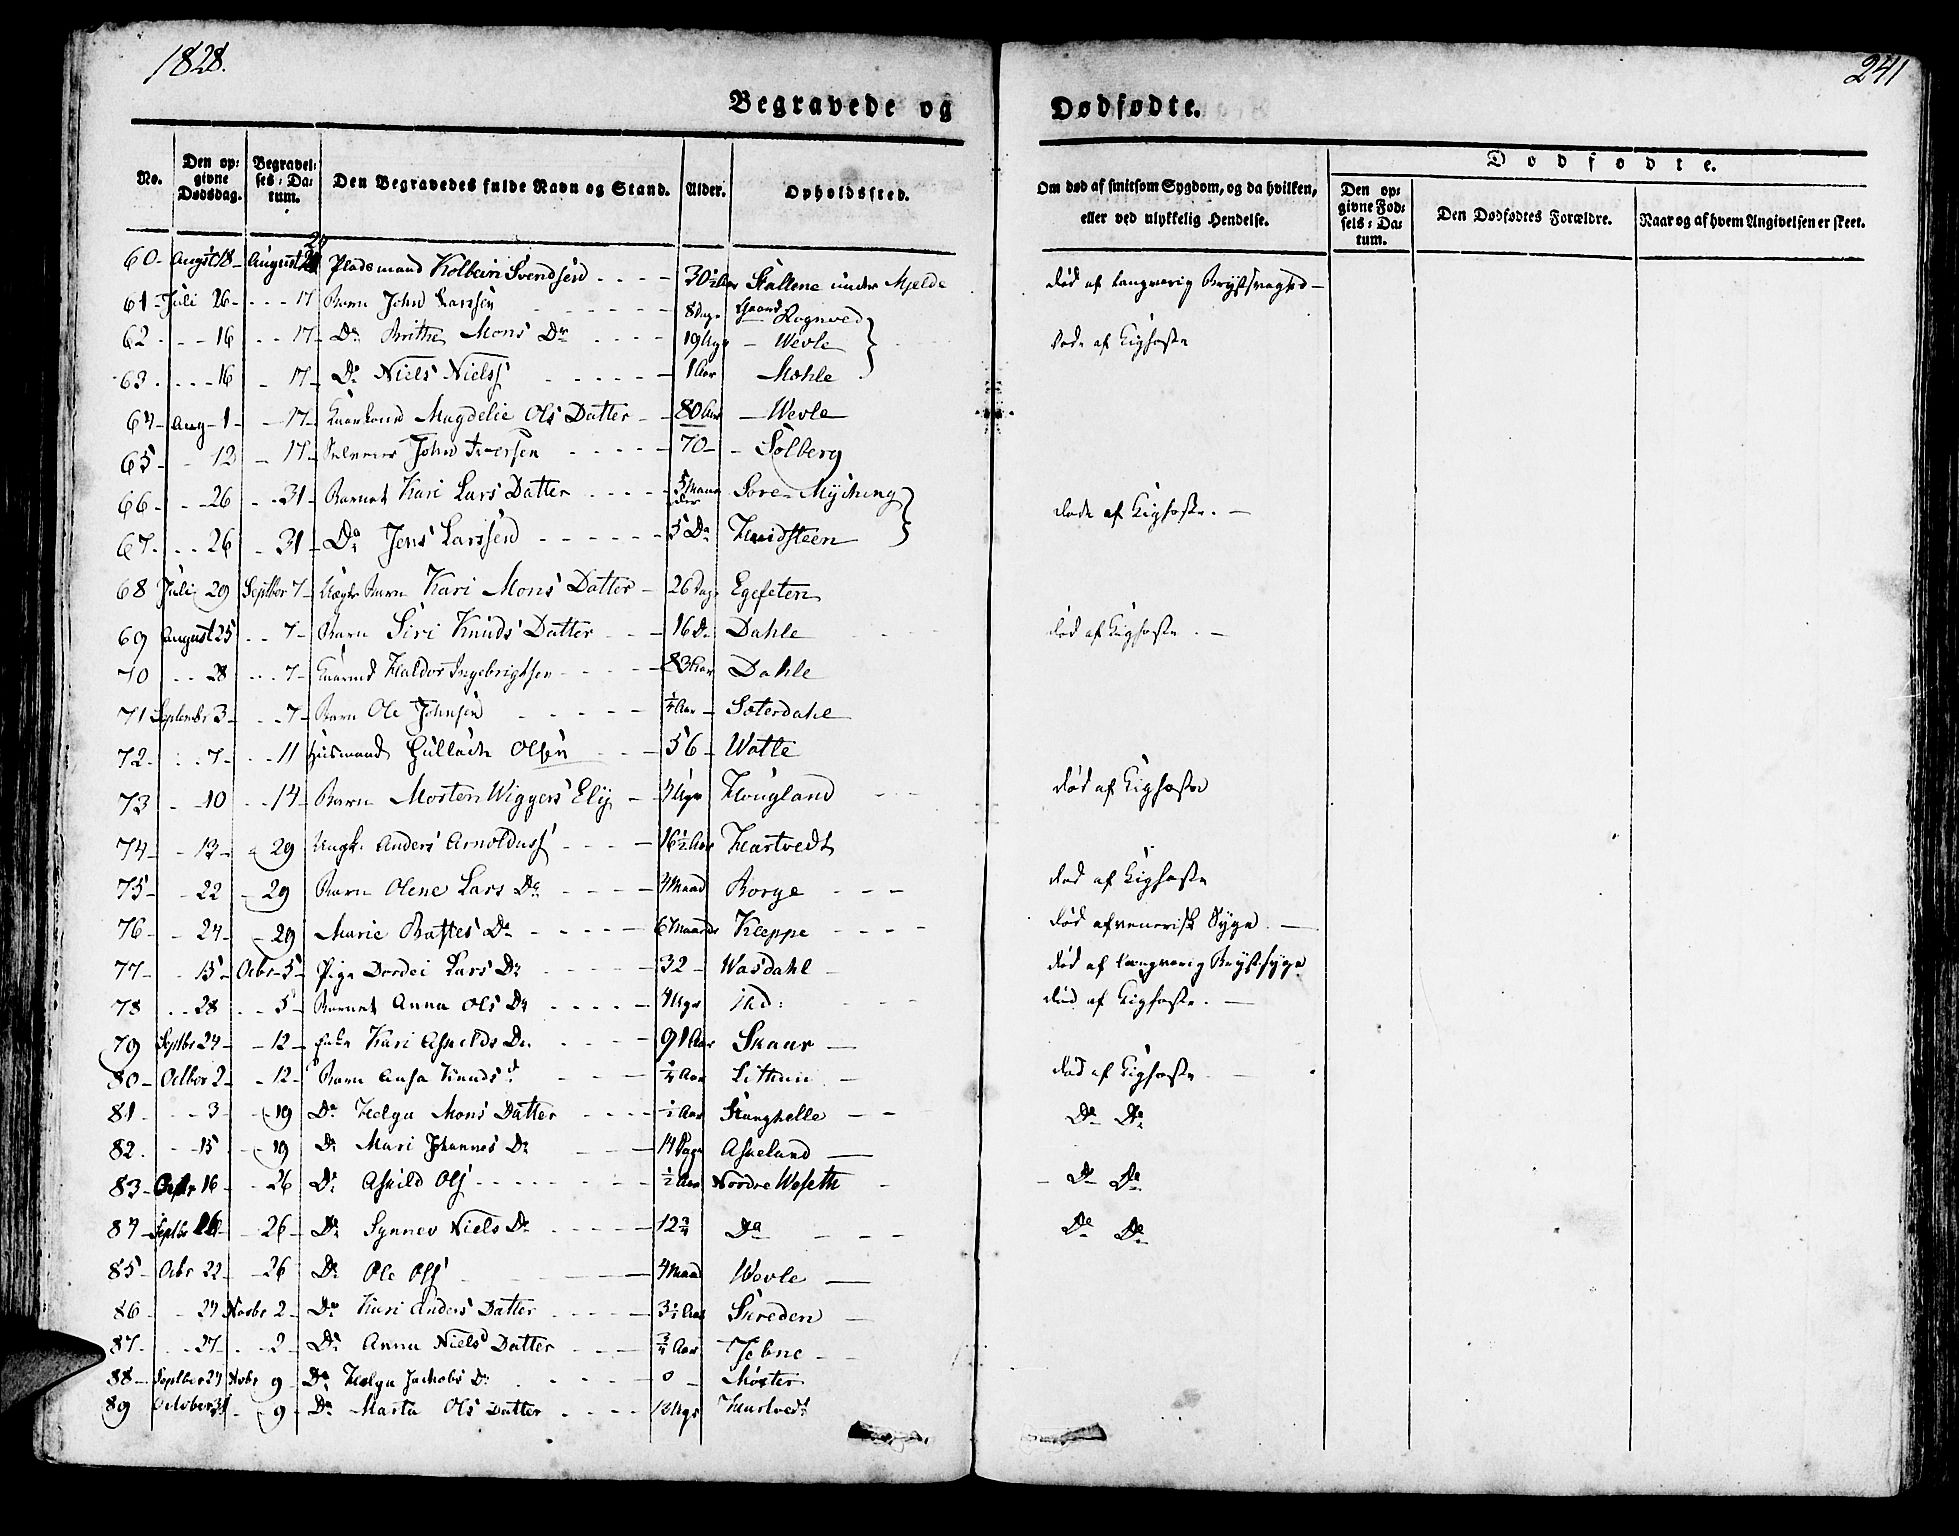 1828.
241
Begravede og Dødfødte.
No. Den opgivne Dødsdag. Begravelses-Datum. Den Begravedes fulde Navn og Stand. Alder. Opholdssted. Om død af smitsom Sygdom, og da hvilken, eller ved ulykkelig Hendelse. Dødfødte.
Den opgivne Fødsels-Datum. Den Dødfødtes Forældre. Naar og af hvem Angivelsen er skeet.
60 - August 18 - August 24 Pladsmand Kolbein Svendsen 30½ Aar Stallene under Mjelde død af langvarig Brystsvaghed
61 - Juli 26 - 17 Barn John Larsen 8 Dage Rognved
62 - 16 - 17 - Do Brithe Mons Dr 19 Uger - Wevle døde af Kighoste
63 - 16 - 17 - Do Niels Nielss 1 Aar Mohle
64 - Aug - 1 - 17 - Magdelie Ols Datter 80 Aar - Wevle
65 - 12 - 17 - John Iversen 70 - Solberg
66 - 26 - 31 - Barnet Kari Lars Datter 5 Maaneder Sore-Myching døde af Kighoste.
67 - 26 - 31 - Do Jens Larssen 5 Do Hvidsteen
68 Juli 29 Septber 7 - Uægte Barn Kari Mons Datter - 26 Dage Egefeten
69 August 25 - 7 - Barn Siri Knuds Datter 16 Do Dahle død af Kighoste.
70 - 28 - 7 - Haldor Ingebrigtsen 83 Aar Dahle
71 Septembr 3 - 7 - Barn Ole Johnsen ¼ Aar - Soterdahl
72 - 7 - 11 Husmand Gullack Olsen 56 - Watle
73 - 10 - 14 - Barn Morten Wiggers Ely 4 Uger Hougland død af Kighoste
74 - 13 - 29 Ungk. Anders Arnolduss 16½ Aar Hartvedt
75 - 22 - 29 Barn Olene Lars Dr 4 Maad Borge død af Kighoste
76 - 24 - 29 Marie Dr 6 Maaneds Kleppe død af venerisk Syge.
77 - 15 - Octbr 5 - Pige Dordei Lars Dr 32 - Wasdahl død af langvarig Brystsyge
78 - 28 - 5 - Barnet Anna Ols Dr 4 Uger ibd: død af Kighoste.
79 Septbr 24 - 12 - Enke Kari Askelds Dr. 91 Aar Skaar
80 - Octbor 2 - 12 - Barn Knuds d ¼ Aar død af Kighoste
81 - 3 - 19 Do Helga Mons Datter ½ Aar Stanghelle Do Do
82. - 15 - 19 Do Mari Johannes Dr 14 Dage Askeland
83 - 16 - 26 Do Askild Ols ½ Aar Nordre Woseth Do Do
84 - Septbr 26 - 26 - Do Synnev Niels Dr 12¾ Do Do Do
85 - Ocbr 22 - 26 Do Ole Ols 4 Maad Wevle
86 - 24 Novbr 2 - Do Kari Anders Datter 3½ Aar Skreden
87 - 27 - 2 Do Anna Niels Datter ¾ Aar
88 - Septber 24 Nobr 9 - Do Helga Jachobs Dr 0 - Moster
89 October 31 - 9 - Do Marta Ols Datter 13 Uger Hartvedt